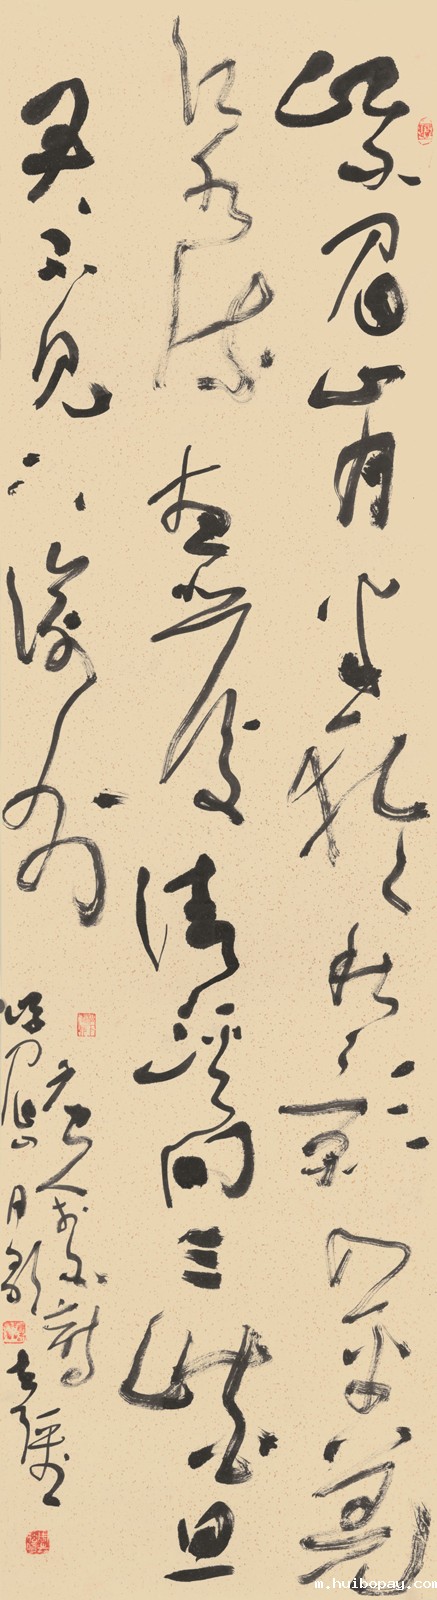 峨眉山月半輪秋影入平羌
江水流夜發清溪向三峽思
君不見下渝州
峨眉山月歌
m.huibopay.com